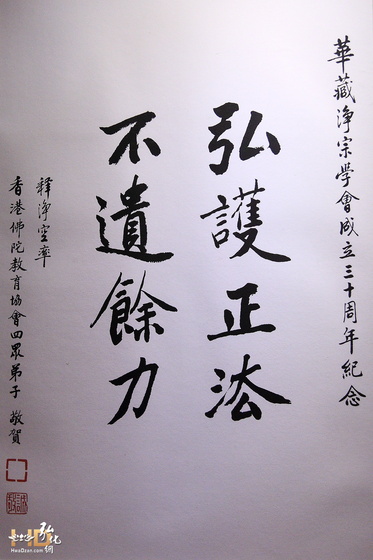 華藏淨宗學會成立三十周年紀念
弘護正法
不遺餘力
釋淨空率
香港佛陀教育協會四眾弟子 敬賀
HD
弘化網
HwaDzan.com